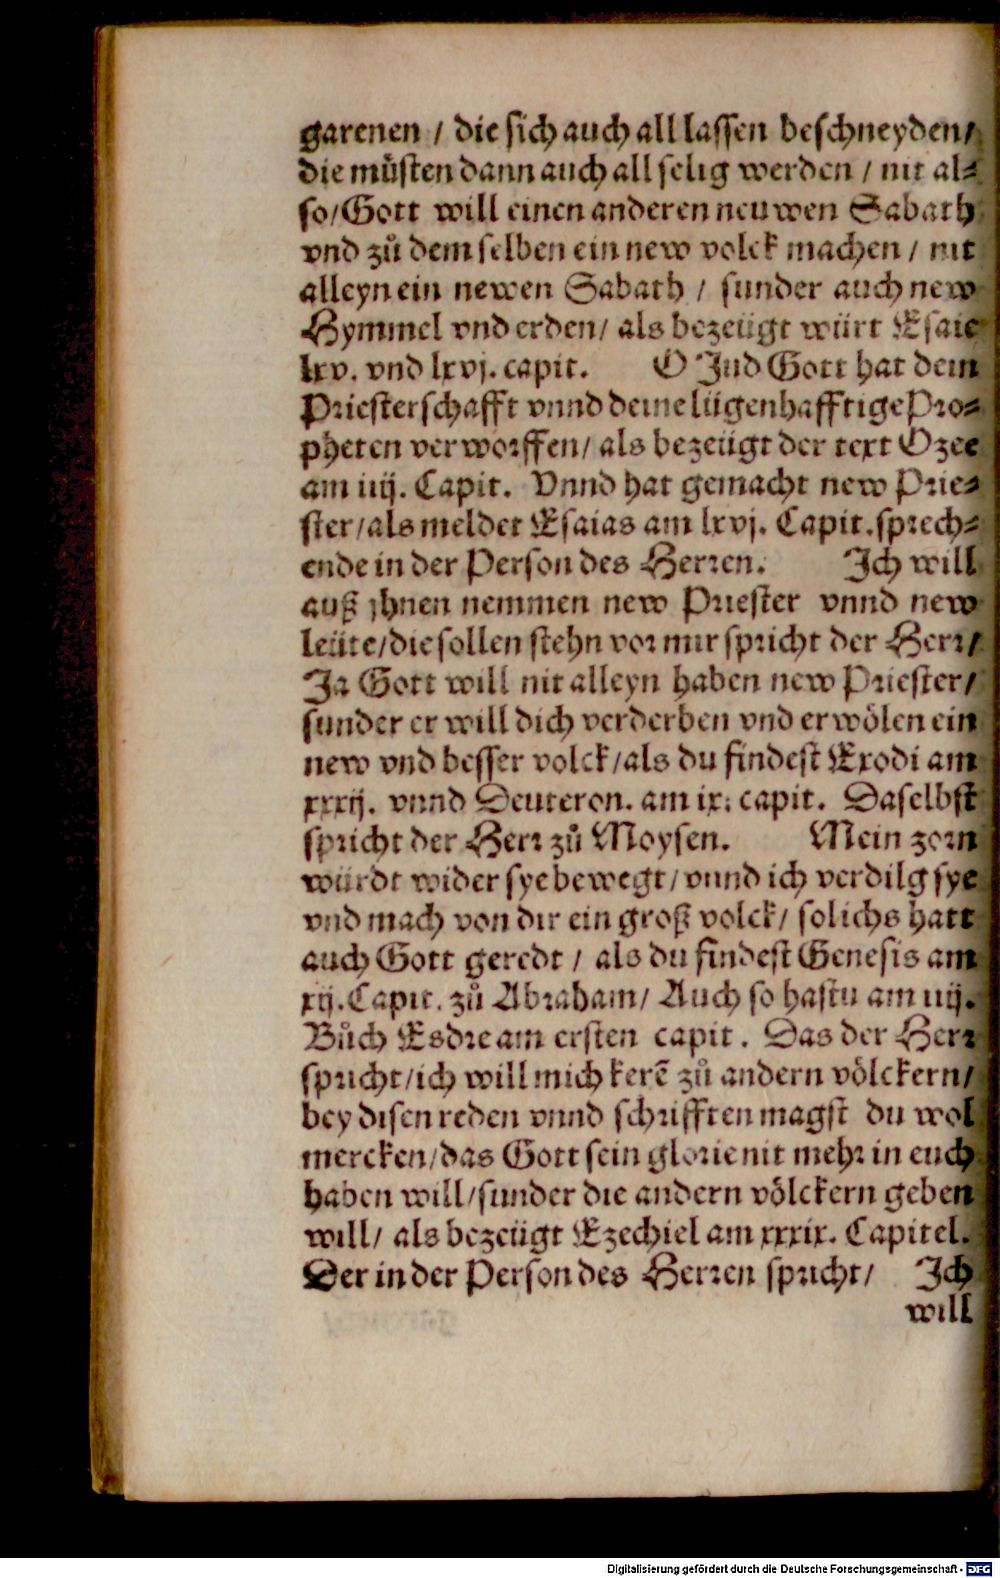 garenen / die sich auch all lassen beschneyden/
die müsten dann auch all selig werden / nit al⸗
so/Gott will einen anderen neuwen Sabath
vnd zů dem selben ein new volck machen / nit
alleyn ein newen Sabath / sunder auch new
Hymmel vnd erden/ als bezeügt würt Esaie
lxv. vnd lxvj. capit. O Jud Gott hat dein
Priesterschafft vnnd deine lügenhafftige Pro⸗
pheten verworffen/ als bezeügt der text Ozee
am iiij. Capit. Vnnd hat gemacht new Prie⸗
ster/als meldet Esaias am lxvj. Capit. sprech⸗
ende in der Person des Herren. Ich will
auß jhnen nemmen new Priester vnnd new
leüte/die sollen stehn vor mir spricht der Herr/
Ja Gott will nit alleyn haben new Priester/
sunder er will dich verderben vnd erwölen ein
new vnd besser volck/als du findest Exodi am
xxxij. vnnd Deuteron. am ix. capit. Daselbst
spricht der Herr zů Moysen. Mein zorn
würdt wider sye bewegt/ vnnd ich verdilg sye
vnd mach von dir ein groß volck/ solichs hatt
auch Gott geredt / als du findest Genesis am
xij. Capit. zů Abraham/ Auch so hastu am iiij.
Bůch Esdre am ersten capit. Das der Herr
spricht/ich will mich kerē zů andern völckern/
bey disen reden vnnd schrifften magst du wol
mercken/das Gott sein glorie nit mehr in euch
haben will/sunder die andern völckern geben
will/ als bezeügt Ezechiel am xxxix. Capitel.
Der in der Person des Herren spricht/ Ich
will
Digitalisierung gefördert durch die Deutsche Forschungsgemeinschaft - DFG